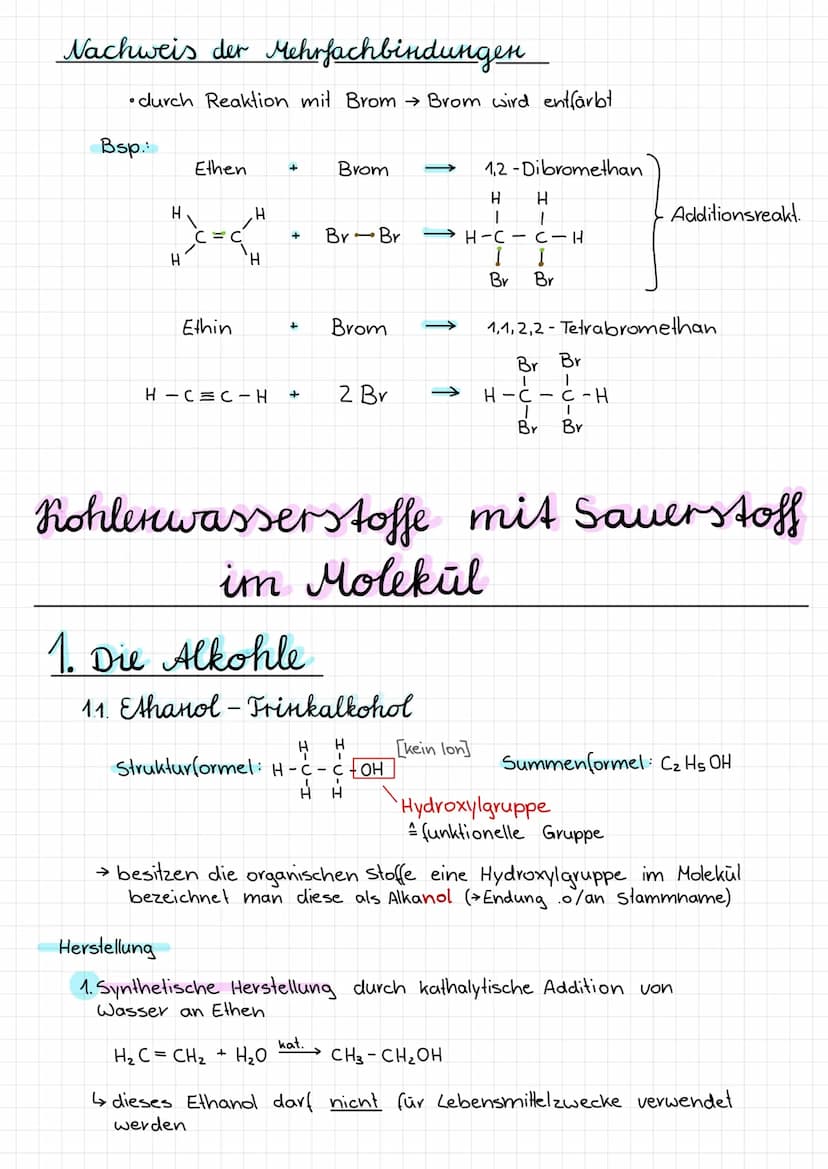 Nachweis der Mehrfachbindungen
• durch Reaktion mit Brom → Brom wird entfärbt
Bsp.:
Ethen + Brom → 1,2-Dibromethan
H H
H H | |
C=C + Br—Br → H-C-C-H Additionsreakt.
H H | |
Br Br
Ethin + Brom → 1,1,2,2-Tetrabromethan
Br Br
| |
H-C≡C-H + 2 Br → H-C-C-H
| |
Br Br
Kohlenwasserstoffe mit Sauerstoff
im Molekül
1. Die Alkohle
1.1. Ethanol - Trinkalkohol
H H [kein Ion]
Strukturformel: H-C-C-OH Summenformel: C₂H₅OH
H H
Hydroxylgruppe
≙ funktionelle Gruppe
→ besitzen die organischen Stoffe eine Hydroxylgruppe im Molekül
bezeichnet man diese als Alkanol (→Endung .o/an Stammname)
Herstellung
1. Synthetische Herstellung durch kathalytische Addition von
Wasser an Ethen
H₂C=CH₂ + H₂O kat.→ CH₃-CH₂OH
↳ dieses Ethanol darf nicht für Lebensmittelzwecke verwendet
werden